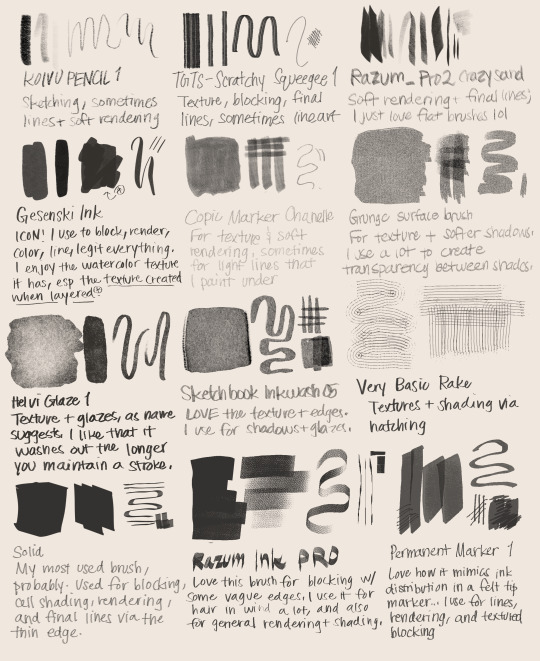 KOIVU PENCIL 1
Sketching, sometimes
lines + soft rendering
TGTS-Scratchy Squeegee 1
Texture, blocking, final
lines, sometimes lineart
Razum_Pro2 crazy sand
Soft rendering + final lines;
I just love flat brushes lol
Gesenski Ink
ICON! I use to block, render,
color, line, legit everything.
I enjoy the watercolor texture
it has, esp the texture created
when layered
Copic Marker Chanelle
For texture + soft
rendering, sometimes
for light lines that
I paint under
Grunge surface brush
For texture + softer shadows.
I use a lot to create
transparency between shades.
Helvi Glaze 1
Texture + glazes, as name
suggests. I like that it
washes out the longer
you maintain a stroke.
Sketchbook Inkwash 05
LOVE the texture + edges.
I use for shadows + glazes.
Very Basic Rake
Textures + shading via
hatching
Solid
My most used brush,
probably. Used for blocking,
cell shading, rendering,
and final lines via the
thin edge.
Razum Ink PRO
Love this brush for blocking w/
some vague edges. I use it for
hair in wind a lot, and also
for general rendering + shading.
Permanent Marker 1
Love how it mimics ink
distribution in a felt tip
marker... I use for lines,
rendering, and textured
blocking